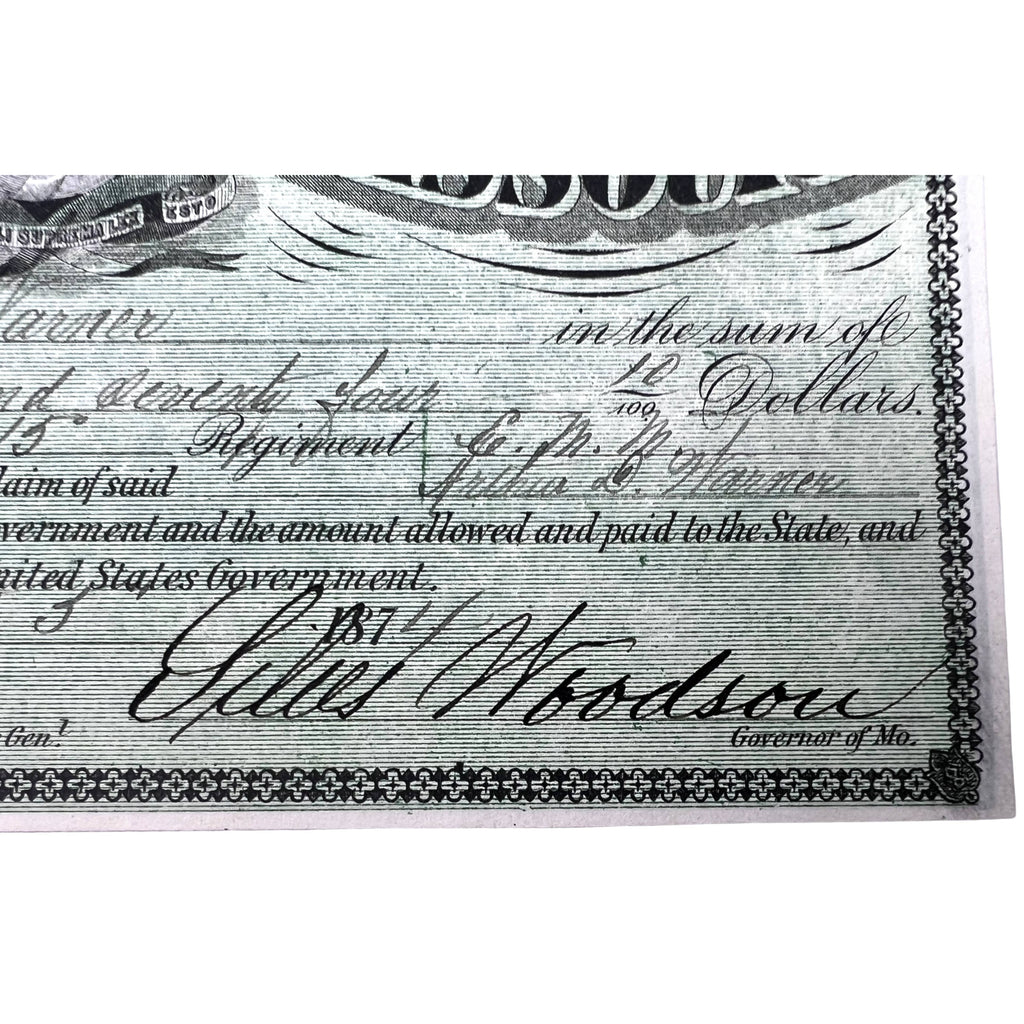 SUPREMA LEX ESTO
Warner in the sum of
nd Seventy Four 10/100 Dollars.
15 Regiment E. M. M.
laim of said Arthur L. Warner
vernment and the amount allowed and paid to the State, and
nited States Government.
3 1874
Silas Woodson
Gen.l Governor of Mo.